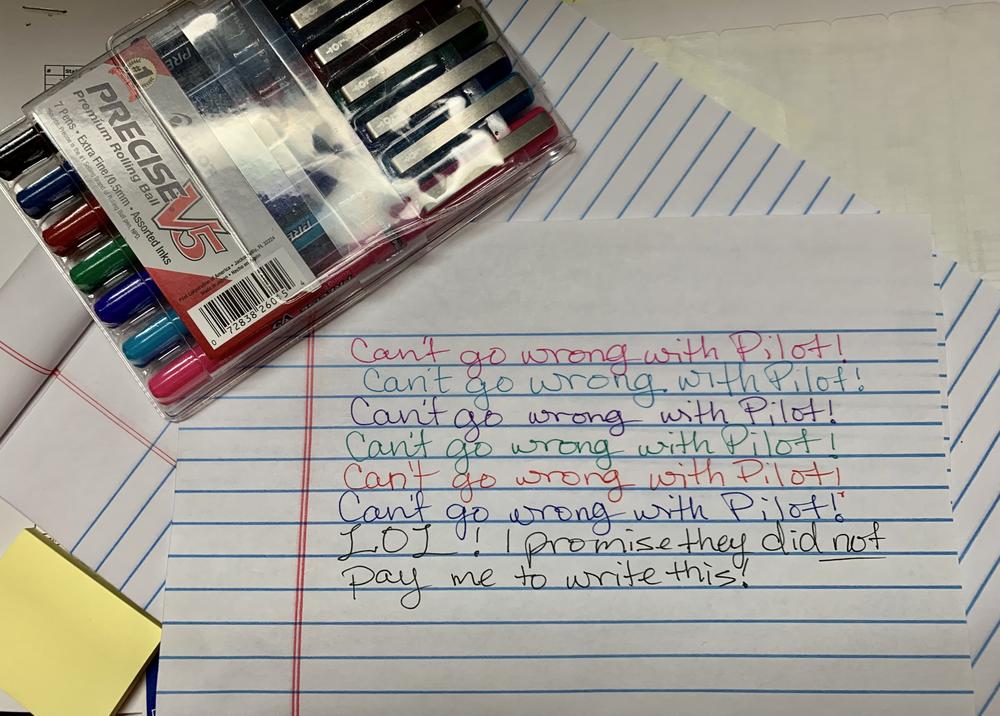 #1
PRECISE V5
Premium Rolling Ball
7 Pens • Extra Fine/0.5mm • Assorted Inks
0 72838 26015 4
Can't go wrong with Pilot!
Can't go wrong with Pilot!
Can't go wrong with Pilot!
Can't go wrong with Pilot!
Can't go wrong with Pilot!
Can't go wrong with Pilot!
LOL! I promise they did not
pay me to write this!